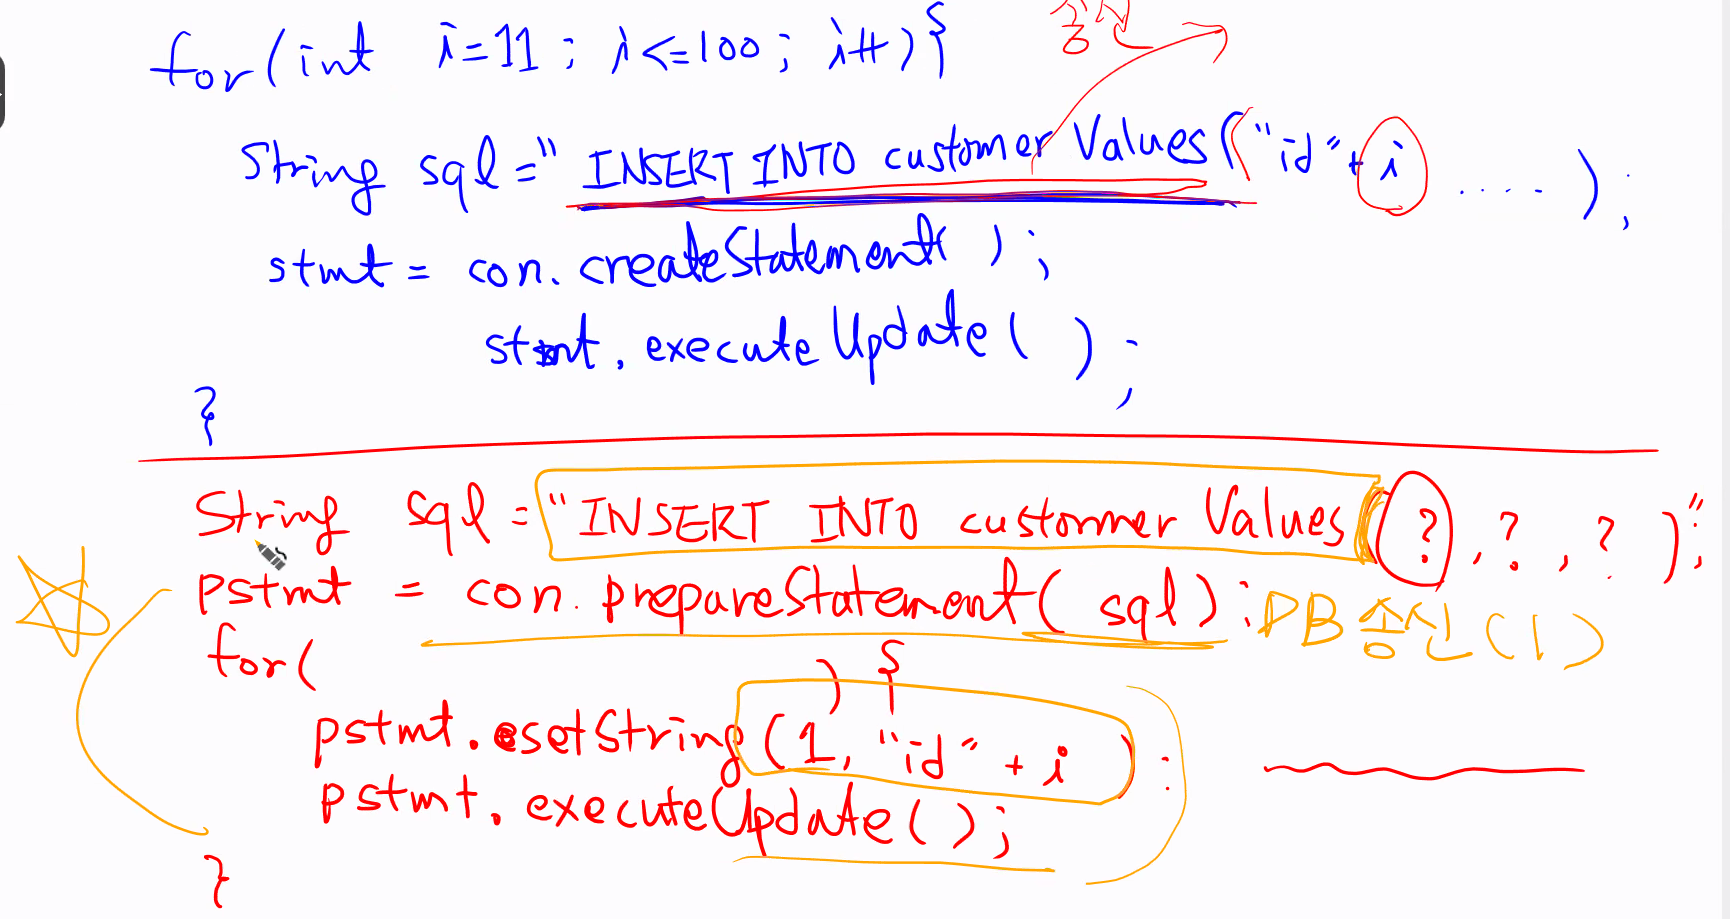 for(int i=11; i<=100; i++){
송신
String sql=" INSERT INTO customer Values("id"+i ..... );
stmt = con.createStatement( );
stmt.executeUpdate( );
}
String sql = "INSERT INTO customer Values(?, ?, ? )";
pstmt = con.prepareStatement( sql); DB 송신(1)
for( ) {
pstmt.setString(1, "id" + i );
pstmt.executeUpdate();
}